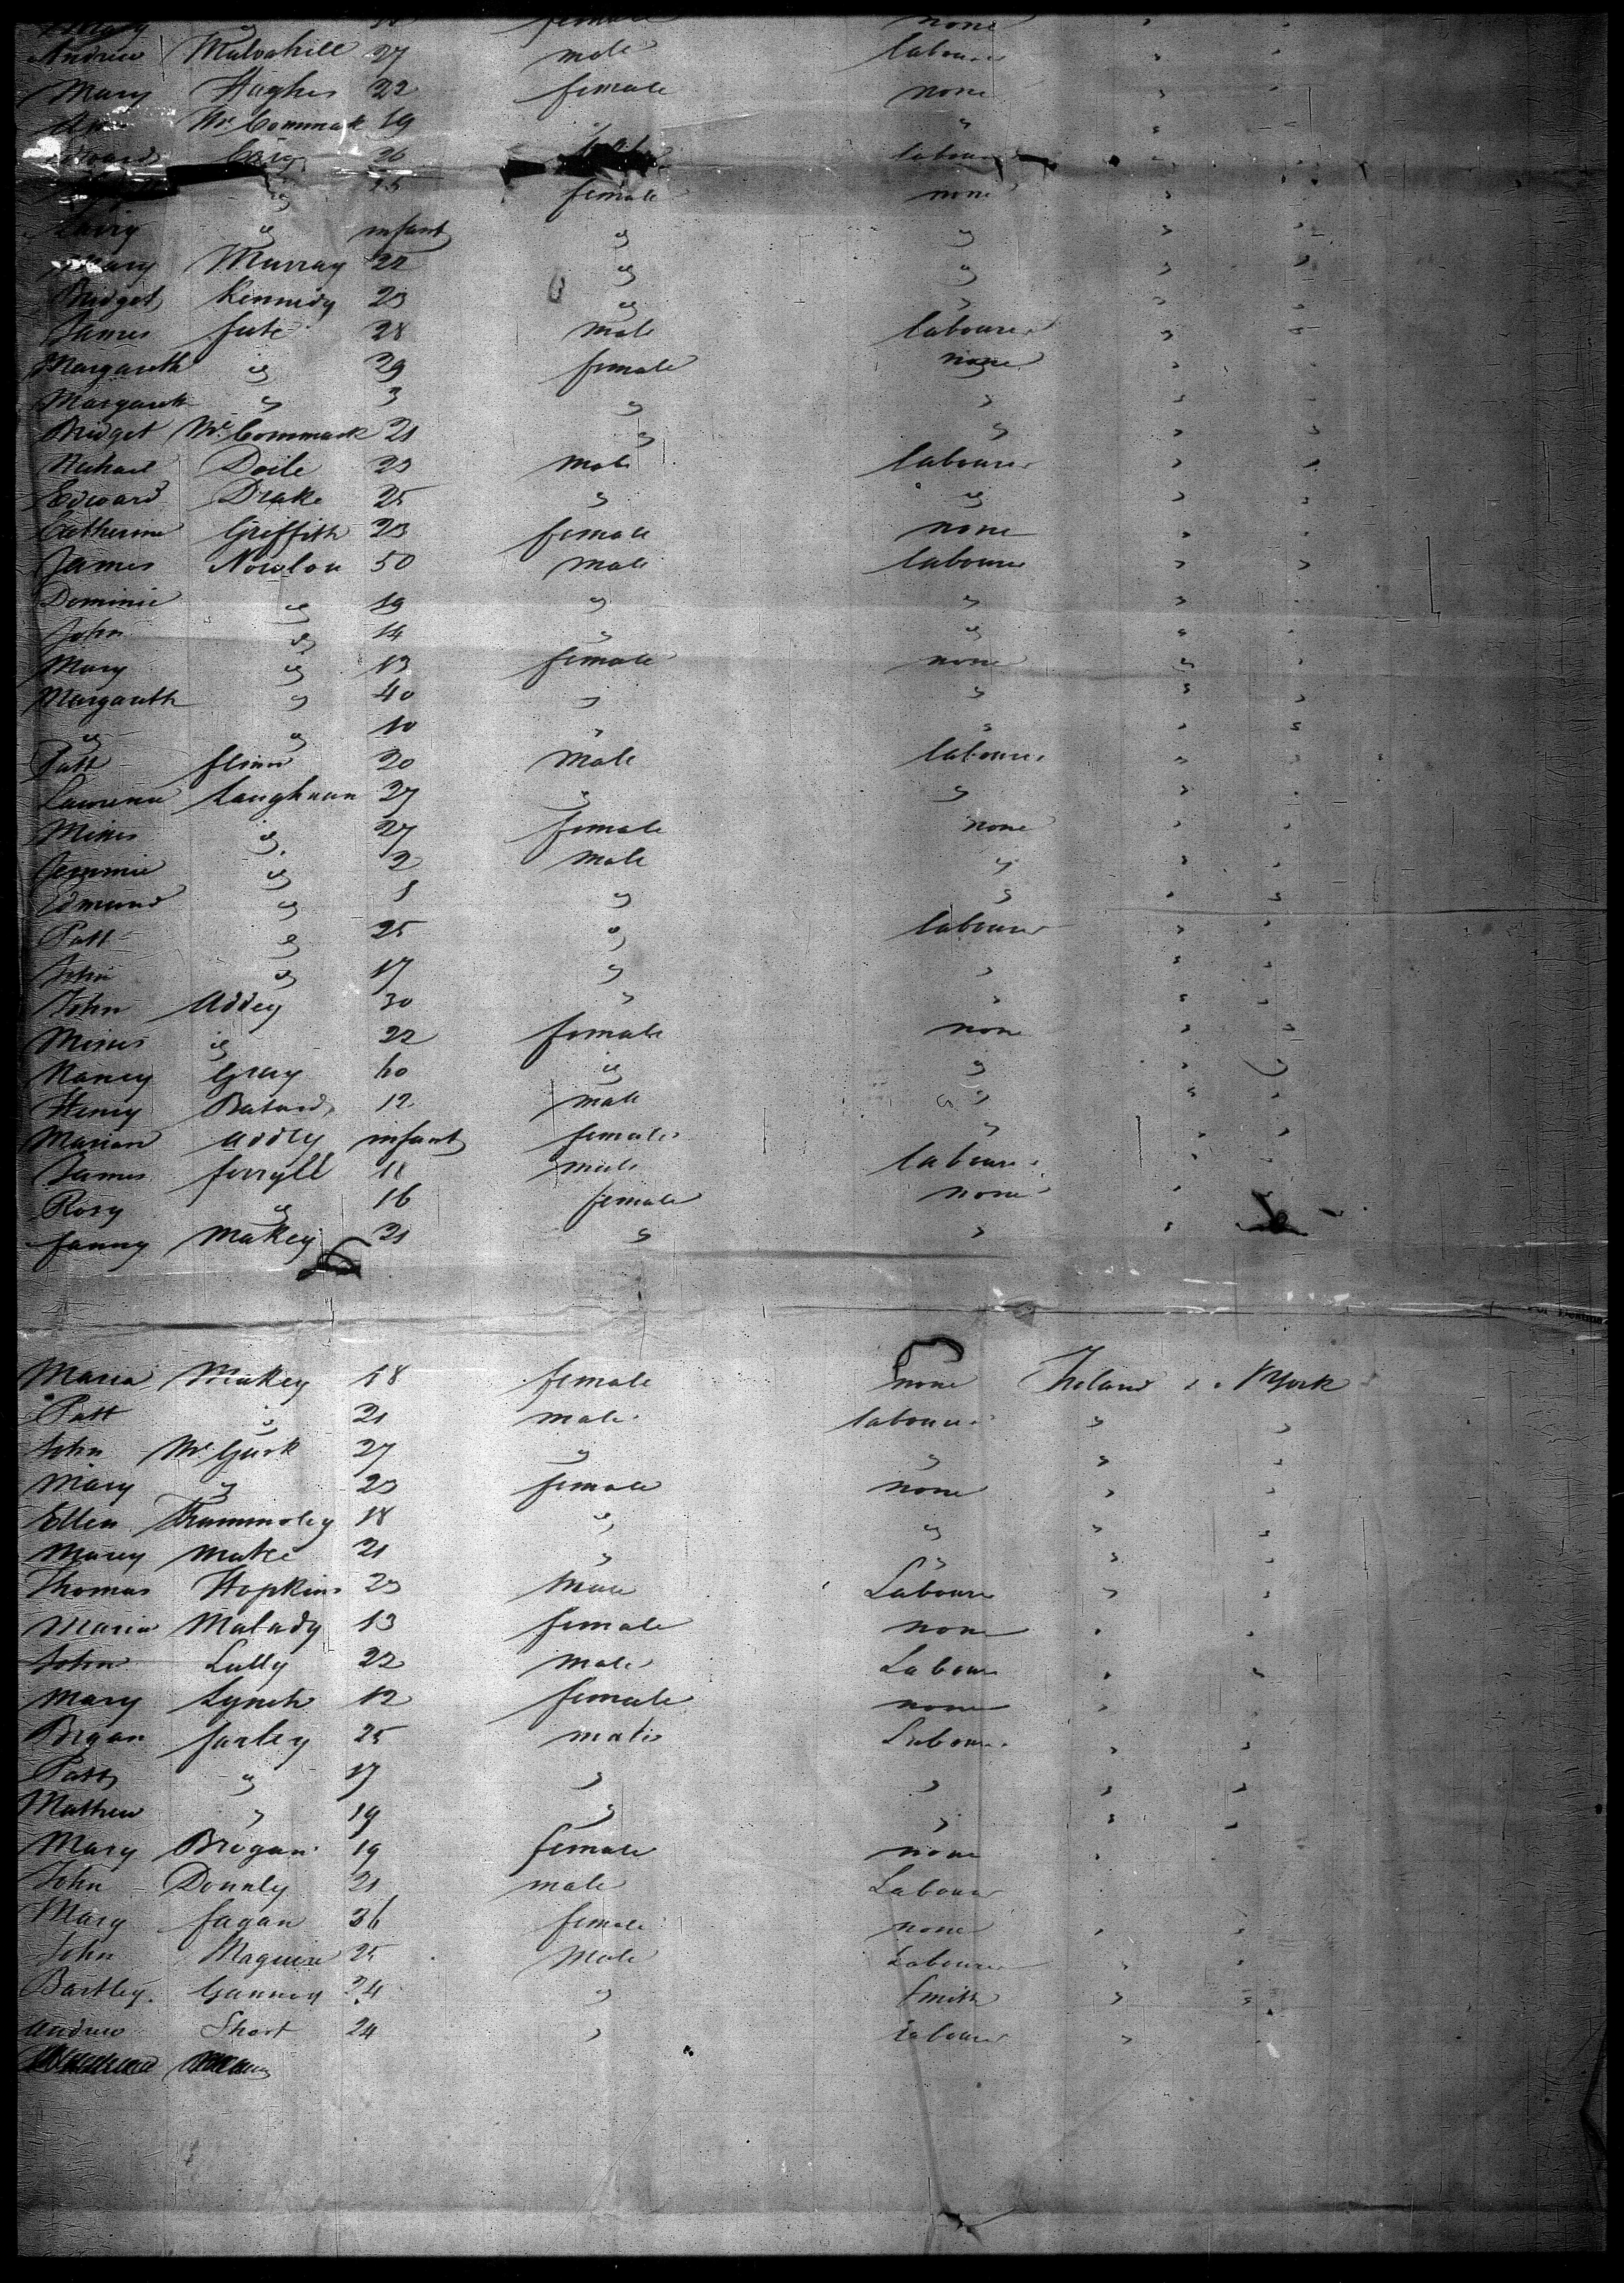 female none
Andrew Mulvahill 27 male labourer " "
Mary Hughes 22 female none " "
Mc Cormmak 19 " " " "
Edward 26 labourer " "
" 25 female none " "
Mary " infant " " " "
Mary Murray 22 " " " "
Bridget Kennidy 23 " " " "
James fute 28 male labourer " "
Margareth " 29 female none " "
Margareth " 3 " " " "
Bridget Mc Cormmack 21 " " " "
Michael Doile 23 male labourer " "
Edward Drake 25 " " " "
Catherine Griffith 23 female none " "
James Nowlan 50 male labourer " "
Dominic " 19 " " " "
John " 14 " " " "
Mary " 13 female none " "
Margareth " 40 " " " "
" " 10 " " " "
Patt flinn 20 male labourer " "
Lawrence Laughnan 27 " " " "
Misses " 27 female none " "
Jemmie " 2 male " " "
Edmund " 1 " " " "
Patt " 25 " labourer " "
John " 17 " " " "
John Addey 30 " " " "
Misses " 22 female none " "
Nancy Gray 60 " " " "
Henry 12 male " " "
Marian addey infant female " " "
James ferryll 18 male labourer " "
Rosy " 16 female none " "
fanny Makey 21 " " "
Maria Makey 18 female none Ireland N York
Patt " 21 male labourer " "
John Mc Gurk 27 " " " "
Mary " 23 female none " "
Ellen 18 " " " "
Marey 21 " " " "
Thomas Hopkins 23 male Labourer " "
Maria Malady 13 female none " "
John Lully 22 male Labourer " "
Mary Lynch 12 female none "
Bryan farley 25 male Labourer " "
Patt " 17 " " " "
Mathew " 19 " " " "
Mary Brogan 19 female none "
John Donnly 21 male Labourer
Mary fagan 36 female none " "
John Maguire 25 Male Labourer " "
Bartley Gannon 24 " Smith " "
Andrew Short 24 " Labourer "